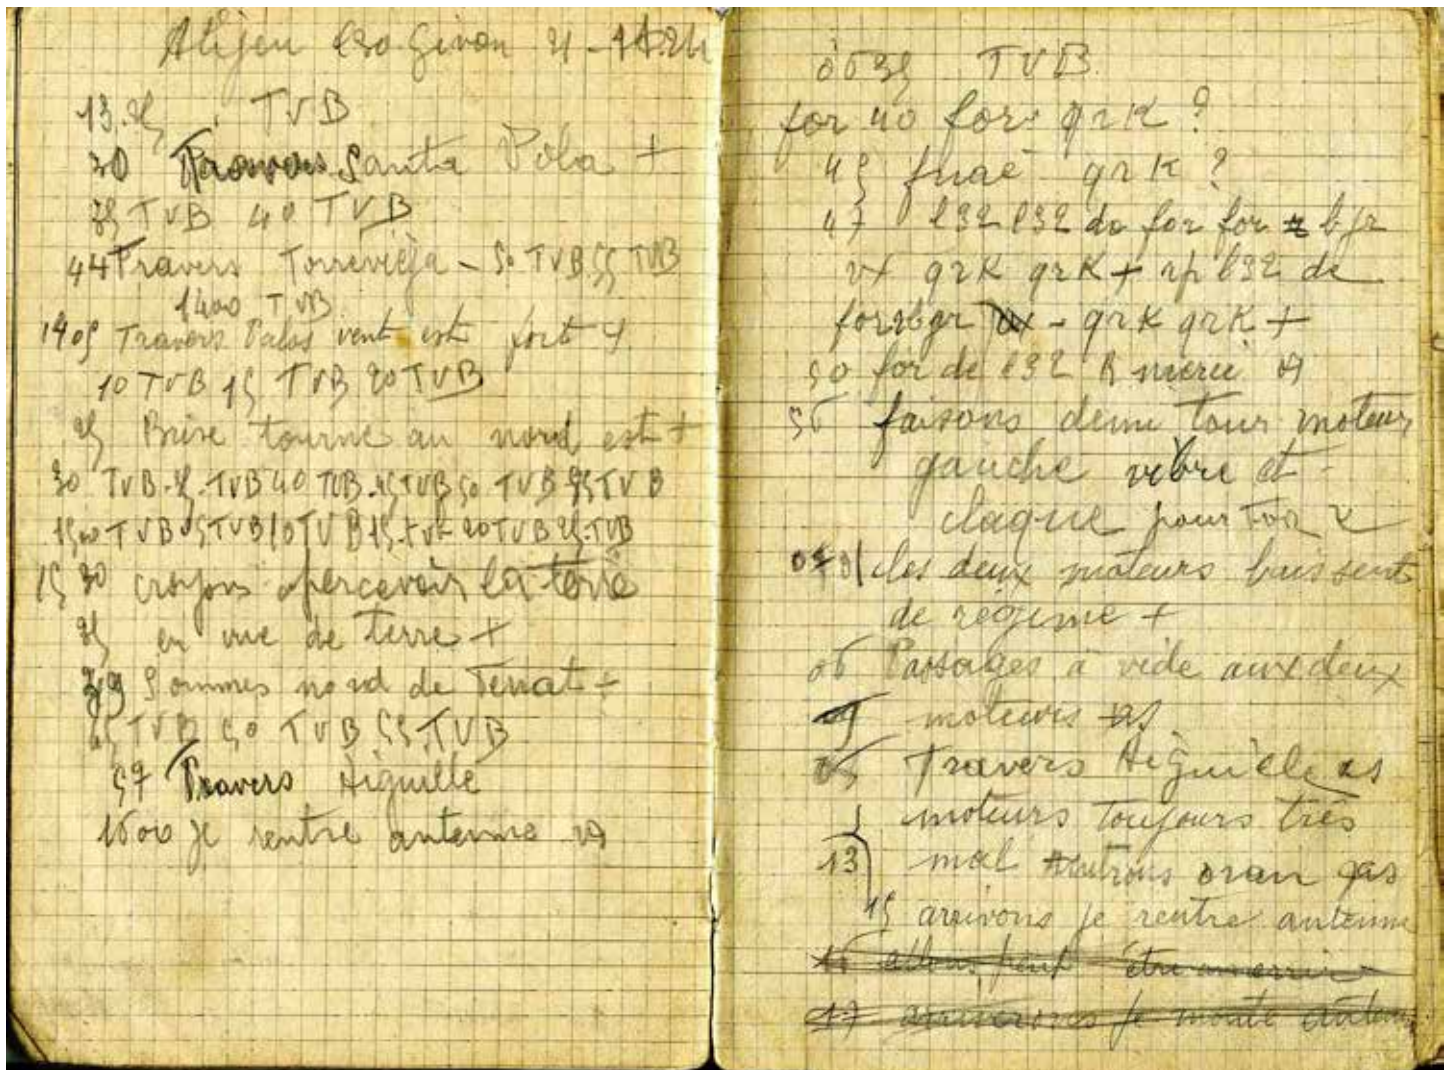 13.25 TVB
30 Travers Santa Pola +
35 TVB 40 TVB
44 Travers Torrevieja - 50 TVB 55 TVB
1400 TVB
1405 Travers Palos vent est fort
10 TVB 15 TVB 20 TVB
25 Brise tourne au nord est +
30 TVB. 35. TVB 40 TVB. 45 TVB 50 TVB 55 TVB
1500 TVB 05 TVB 10 TVB 15. TVB 20 TVB 25. TVB
15 30 croyons apercevoir la terre
35 en vue de terre +
39 Sommes nord de Tenat +
45 TVB 50 TVB 55. TVB
57 Travers Aiguille
1600 je rentre antenne
0635 TVB
for 40 for qrk ?
45 fuaé qrk ?
47 l32 l32 de for for bjr
qrk qrk + rp l32 de
for bjr - qrk qrk +
50 for de l32 R merci
56 faisons demi tour moteur
gauche vibre et
claque pour
les deux moteurs baissent
de régime +
06 Passages à vide aux deux
moteurs as
05 Travers Aiguille as
moteurs toujours très
13 mal rentrons oran gas
15 arrivons je rentre antenne
16 allons peut être
17 arriverons je monte